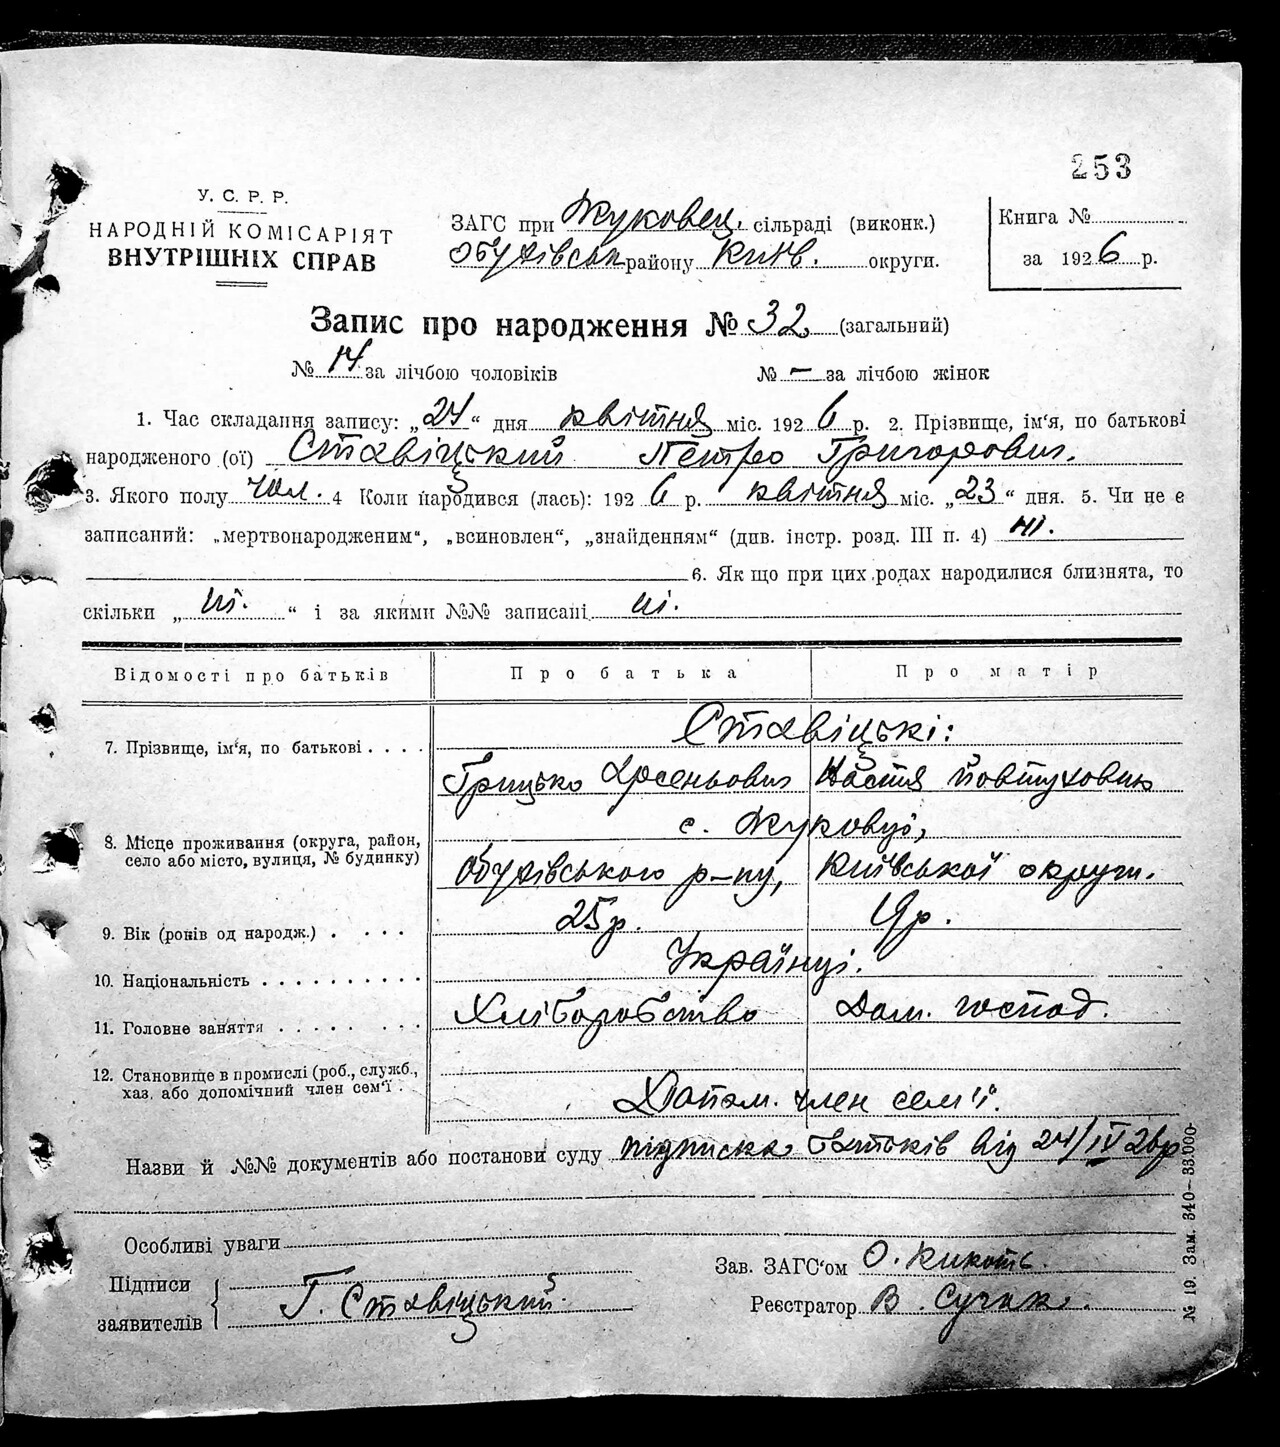 253
У. С. Р. Р.
НАРОДНІЙ КОМІСАРІЯТ
ВНУТРІШНІХ СПРАВ
ЗАГС при Жуковец. сільраді (виконк.)
Обухівськ району Київ. округи.
Книга №
за 1926 р.
Запис про народження № 32 (загальний)
№ 14 за лічбою чоловіків № — за лічбою жінок
1. Час складання запису: „24“ дня квітня міс. 1926 р. 2. Прізвище, ім‘я, по батькові
народженого (ої) Ставіцький Петро Григорович.
3. Якого полу чол. 4 Коли народився (лась): 1926 р. квітня міс. „23“ дня. 5. Чи не є
записаний: „мертвонародженим“, „всиновлен“, „знайденням“ (див. інстр. розд. III п. 4) ні.
6. Як що при цих родах народилися близнята, то
скільки „ні.“ і за якими №№ записані ні.
Відомості про батьків Про батька Про матір
7. Прізвище, ім‘я, по батькові . . . . Ставіцькі:
Грицько Арсеньович Настя Йовтуховна
8. Місце проживання (округа, район, с. Жуковці,
село або місто, вулиця, № будинку) Обухівського р-ну, Київської округи.
9. Вік (років од народж.) . . . . 25 р. 19 р.
10. Національність . . . . . . . . . . Українці.
11. Головне заняття . . . . . . . . . Хліборобство Дом. господ.
12. Становище в промислі (роб., служб.,
хаз. або допомічний член сем‘ї . Допом. член сем'ї.
Назви й №№ документів або постанови суду підписка батьків від 24/IV 26 р
Особливі уваги
Підписи
заявителів Г. Ставіцький.
Зав. ЗАГС‘ом О. Кикоть.
Реєстратор В. Сучак.
№ 19. Зам. 340—33.000